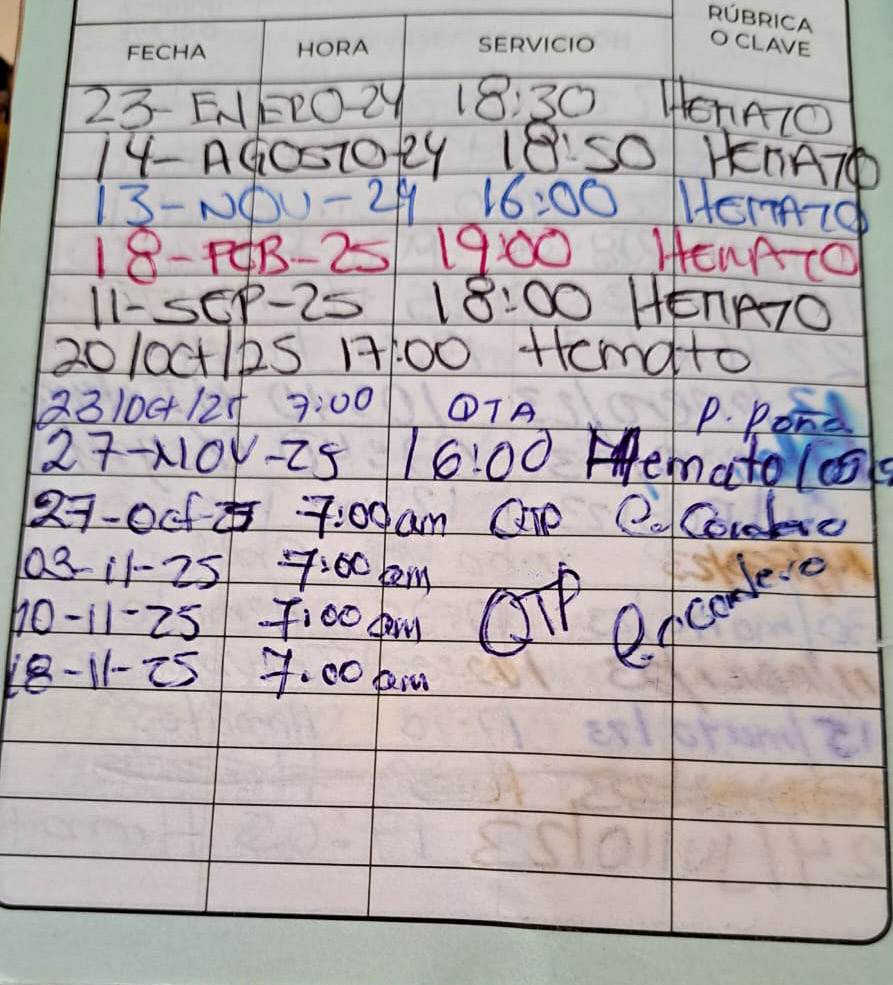 FECHA HORA SERVICIO RÚBRICA O CLAVE
23-ENERO-24 18:30 HEMATO
14-AGOSTO-24 18:50 HEMATO
13-NOV-24 16:00 HEMATO
18-FEB-25 19:00 HEMATO
11-SEP-25 18:00 HEMATO
20/Oct/25 17:00 Hemato
23/Oct/25 7:00 QTA P. Pond
27-NOV-25 16:00 Hemato
27-Oct-25 7:00am QTP
03-11-25 7:00 am
10-11-25 7:00 am QTP
18-11-25 7:00 am